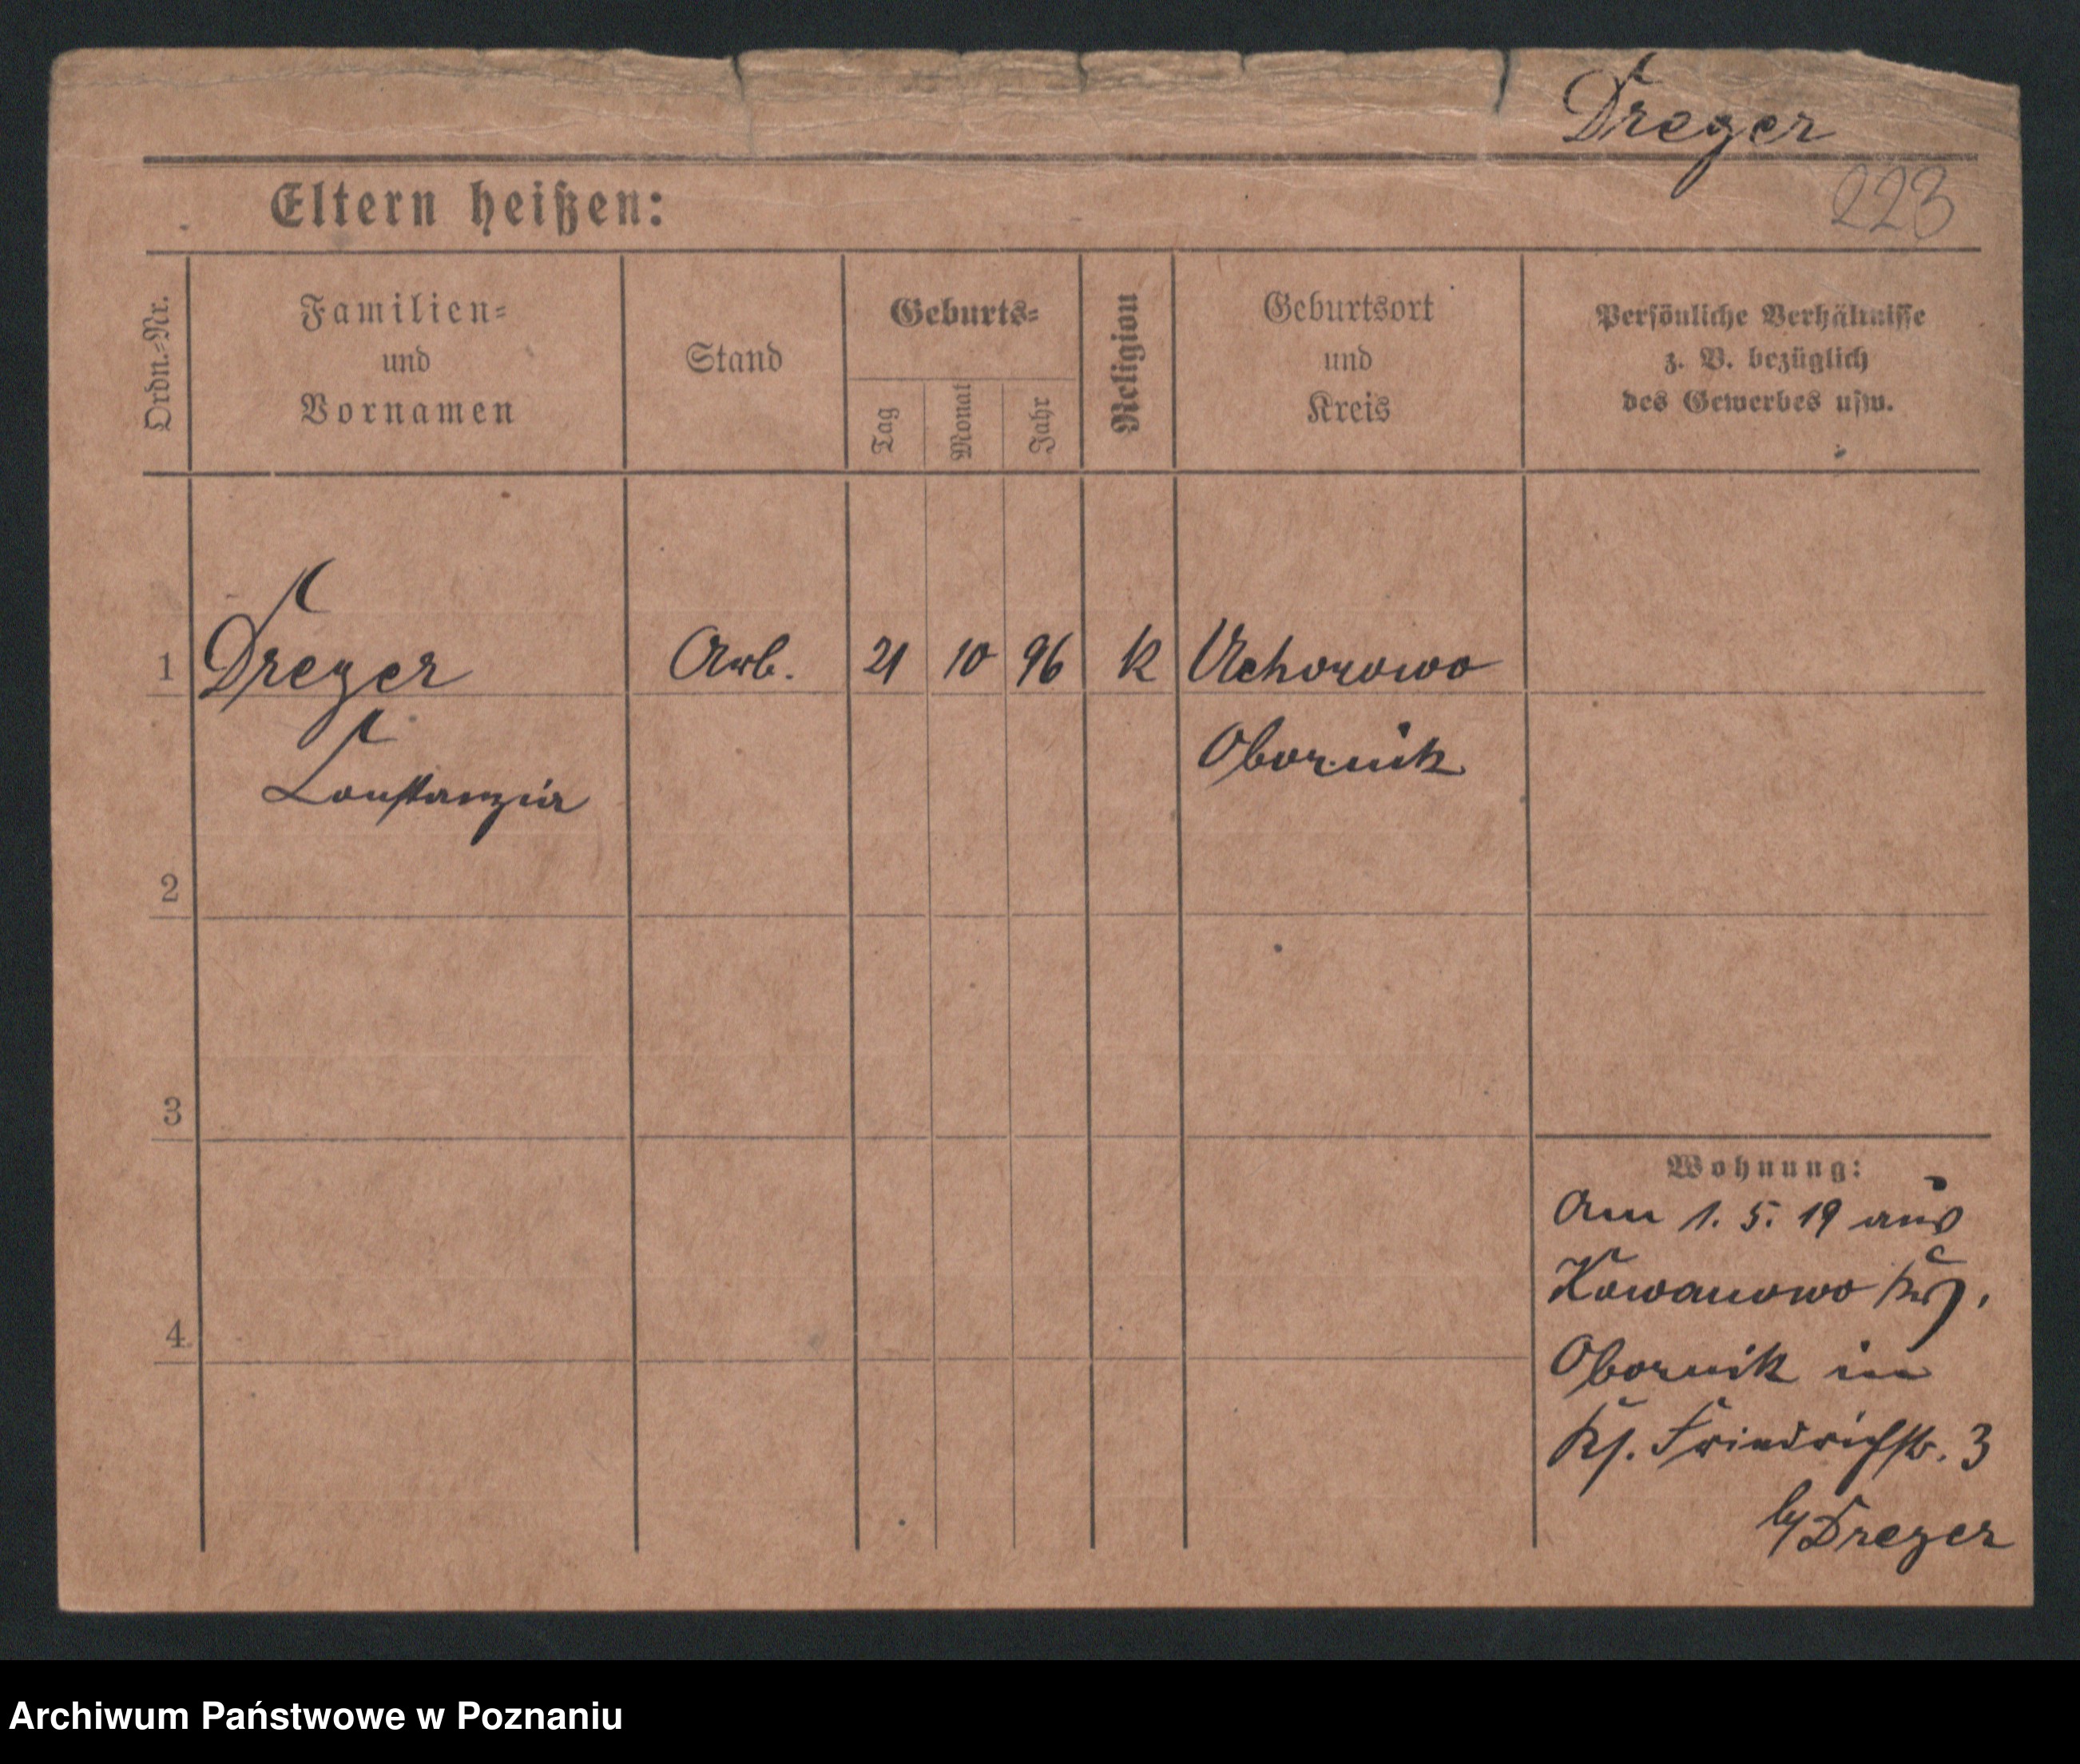 Dreger
223
Eltern heißen:
Ordn.=Nr.
Familien=
und
Vornamen
Stand
Geburts=
Tag
Monat
Jahr
Religion
Geburtsort
und
Kreis
Persönliche Verhältnisse
z. B. bezüglich
des Gewerbes usw.
1 Dreger Arb. 21 10 96 K Uchorowo
Constanzia Obornik
2
3
4
Wohnung:
Am 1. 5. 19 aus
Kowanowo
Obornik in
Friedrichstr. 3
b/ Dreger
Archiwum Państwowe w Poznaniu